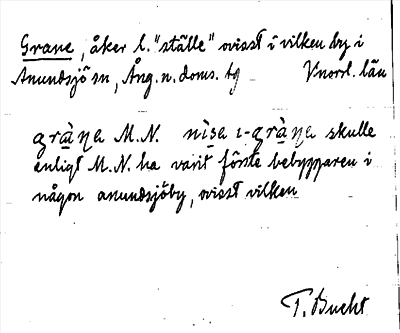 Grane, åker l. "ställe" ovisst i vilken by i
Anundsjö sn, Ång. n. doms. tg Vnorrl. län
gràna M.N. nisa i-gràna skulle
enligt M.N. ha varit förste bebyggaren i
någon anundsjöby, ovisst vilken
T. Bucht